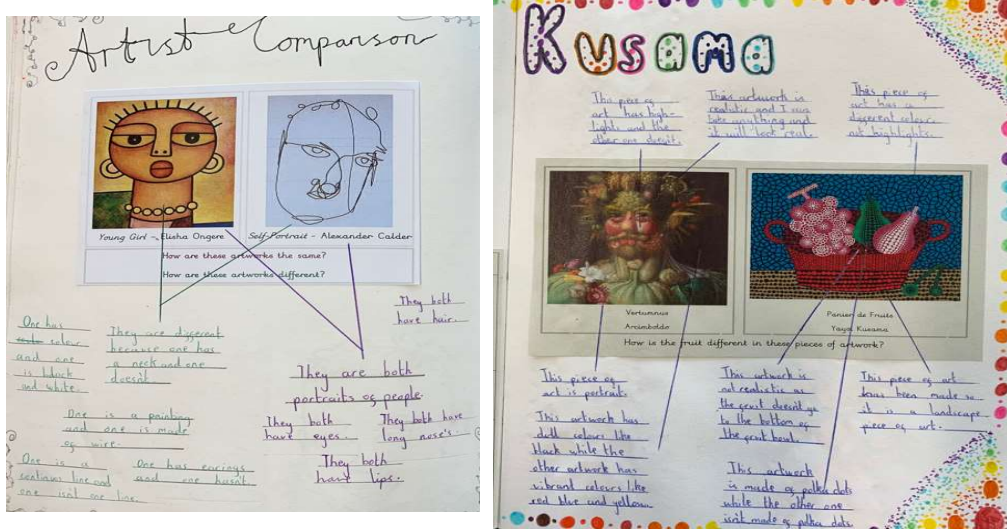 Artist Comparison
Young Girl - Elisha Ongere
Self-Portrait - Alexander Calder
How are these artworks the same?
How are these artworks different?
They both
have hair.
One has
colour
and one
is black
and white.
They are different
because one has
a neck and one
doesnt.
They are both
portraits of people.
They both
have eyes.
They both have
long nose's
They both
have lips.
One is a painting
and one is made
of wire.
One is a
continus line and
one isnt one line.
One has earings
and one hasn't.
Kusama
This piece of
art has high-
lights and the
other one doesn't.
This artwork is
realistic and I can
take anything and
it will look real.
This piece of
art has a
different colour
not highlights.
Vertumnus
Arcimboldo
Panier de Fruits
Yayoi Kusama
How is the fruit different in these pieces of artwork?
This piece of
art is portrait.
This artwork has
dull colours like
black while the
other artwork has
vibrant colours like
red blue and yellow.
This artwork is
not realistic as
the fruit doesnt go
to the bottom of
the fruit bowl.
This artwork
is made of polka dots
while the other one
isn't made of polka dots
This piece of art
has been made so
it is a landscape
piece of art.